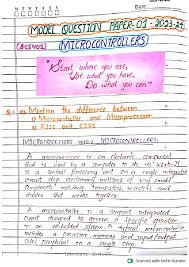 Date
MODEL QUESTION PAPER-01 - 2023-24
(BCS402) MICROCONTROLLERS
"Start where you are,
Use what you have,
Do what you can"
Mention the difference between
i) Microcontroller and Microprocessor
ii) RISC and CISC
MICROPROCESSORS versus MICROCONTROLLERS:
A microprocessor is an electronic component
that is used by a computer to do its work. It is
a central processing unit on a single integrated
circuit chip containing millions of very small
components including transistors, resistors and
diodes that work together.
A microcontroller is a compact integrated
circuit designed to govern a specific operation
in an embedded system. A typical microcontroller
includes a processor, memory and input/output
(I/O) peripherals on a single chip.
Scanned with OKEN Scanner